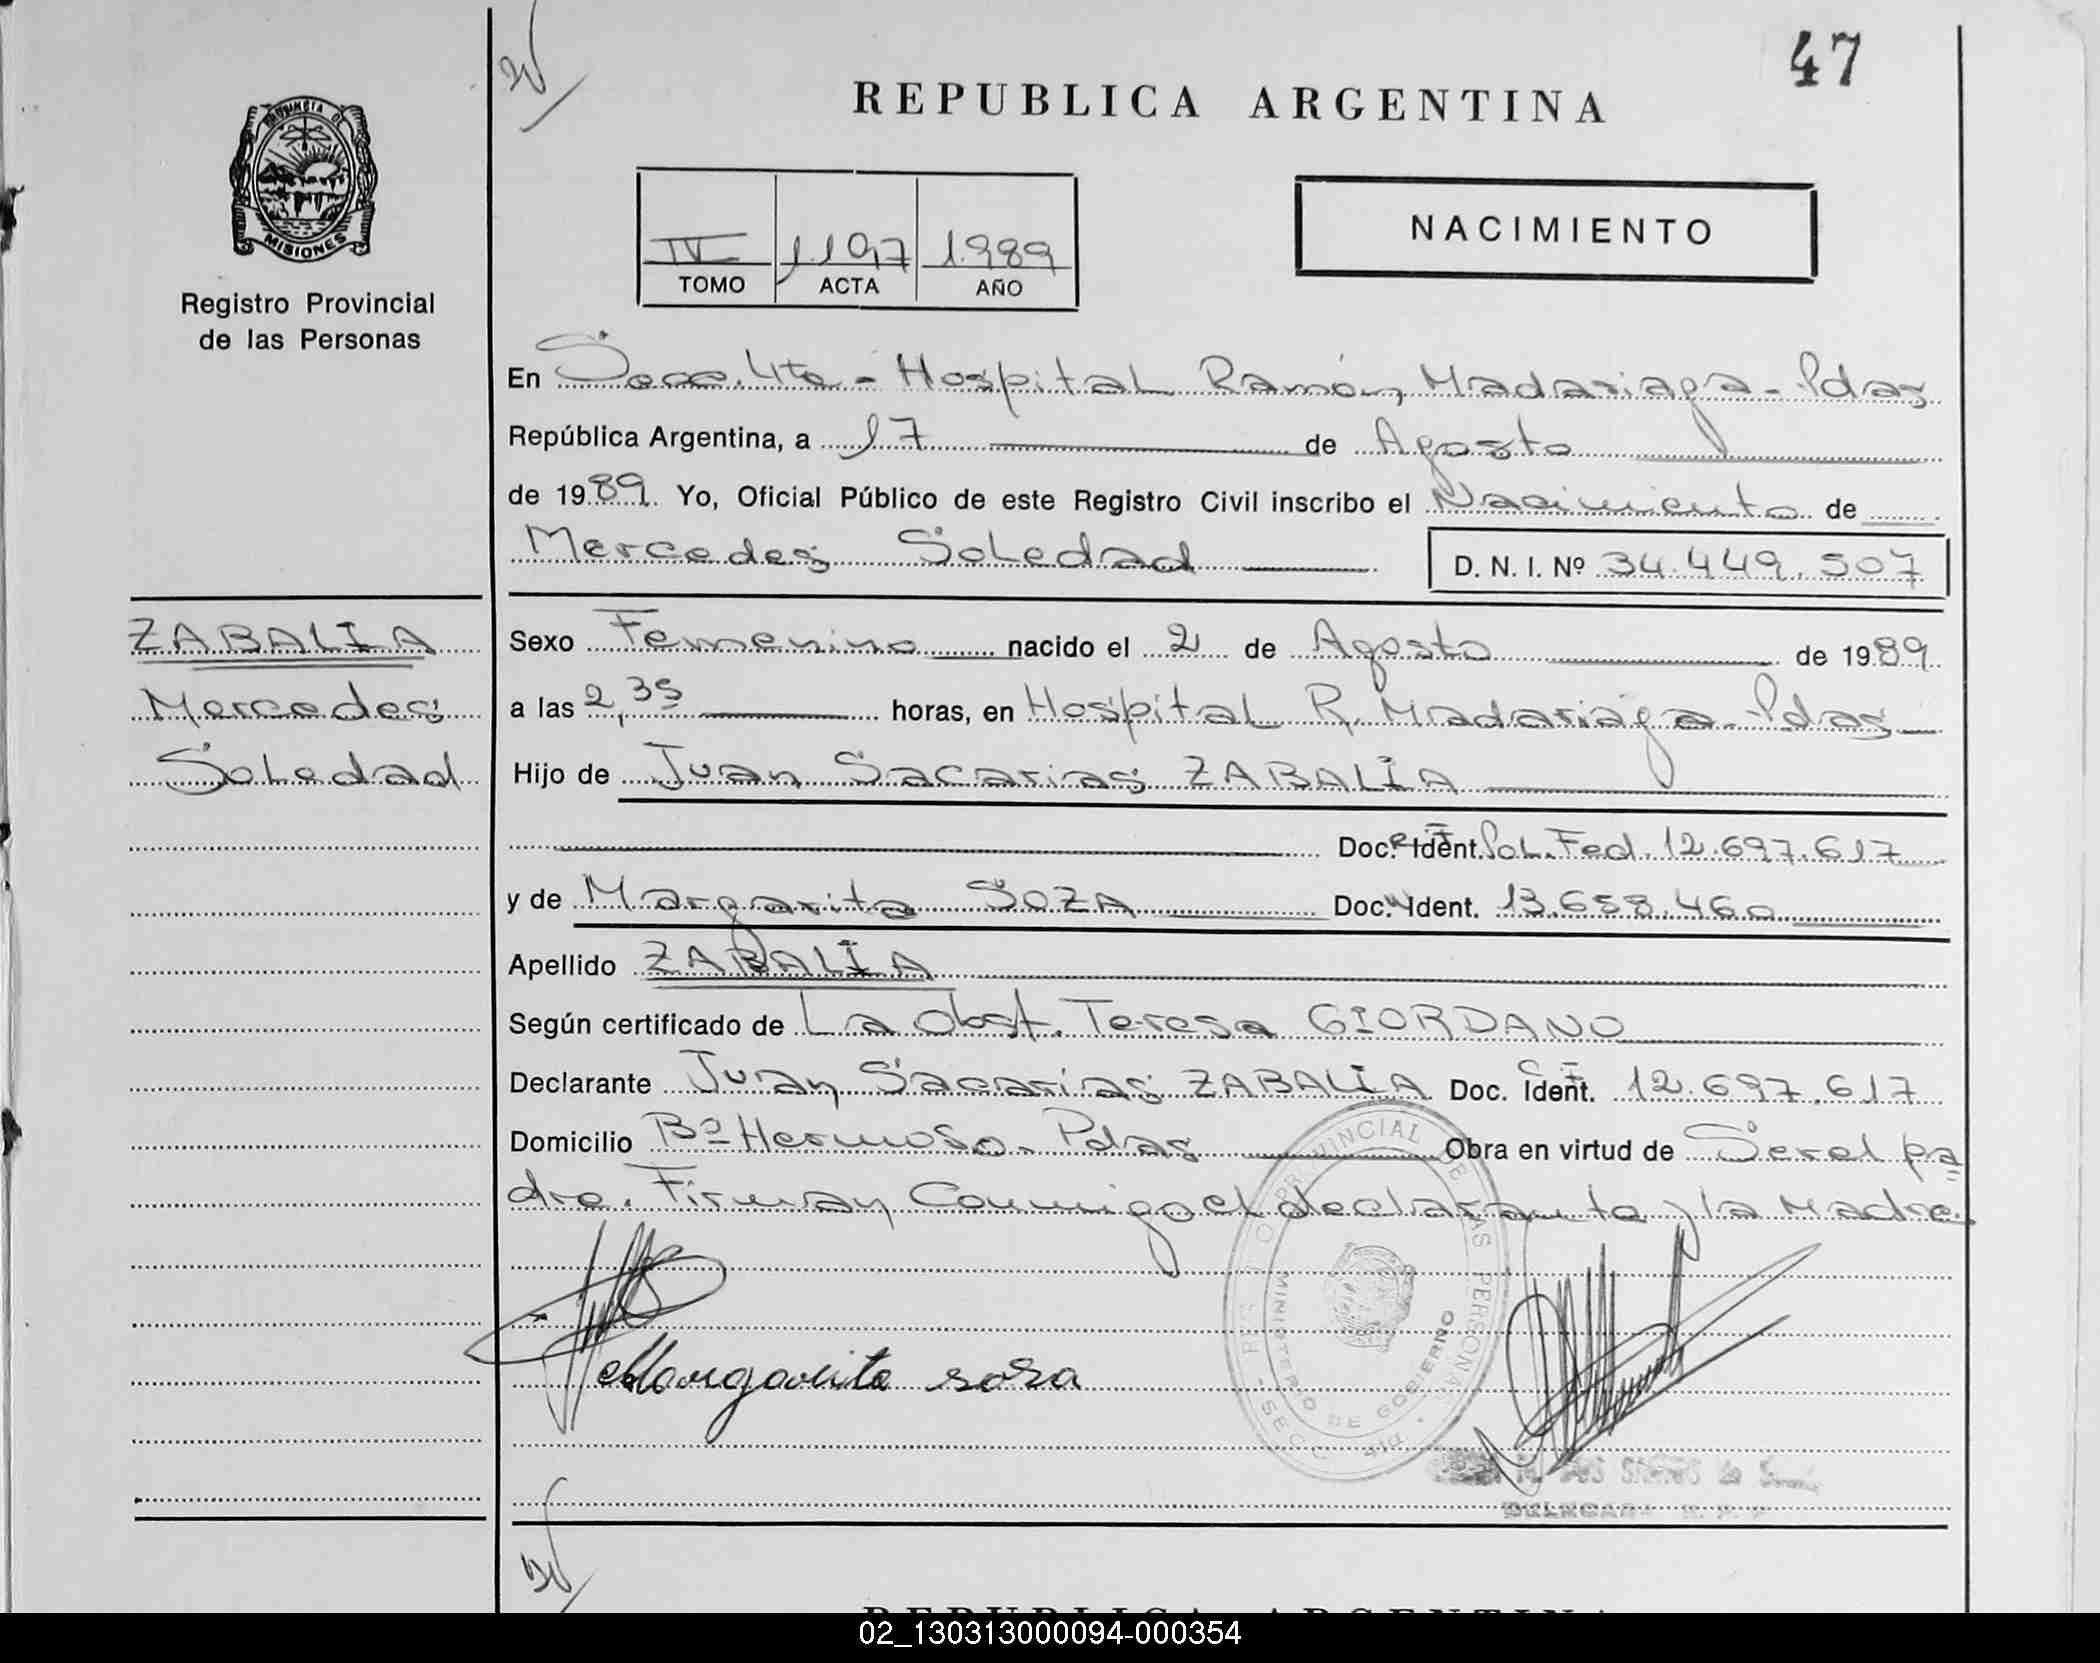 47
REPUBLICA ARGENTINA
PROVINCIA DE
MISIONES
Registro Provincial
de las Personas
NACIMIENTO
IV 1197 1989
TOMO ACTA AÑO
En Secc. 4ta - Hospital Ramón Madariaga - Pdas
República Argentina, a 17 de Agosto
de 1989. Yo, Oficial Público de este Registro Civil inscribo el Nacimiento de
Mercedes Soledad D. N. I. Nº 34.449.507
ZABALIA
Mercedes
Soledad
Sexo Femenino nacido el 2 de Agosto de 1989
a las 2,35 horas, en Hospital R. Madariaga - Pdas
Hijo de Juan Sacarias ZABALIA
Doc. Ident. Pol. Fed. 12.697.617
y de Margarita SOZA Doc. Ident. 13.658.460
Apellido ZABALIA
Según certificado de La Obst. Teresa GIORDANO
Declarante Juan Sacarias ZABALIA Doc. Ident. C I 12.697.617
Domicilio Bº Hermoso - Pdas Obra en virtud de Ser el pa
dre. Firman Conmigo el declarante y la Madre.
Margarita sosa
MINISTERIO DE GOBIERNO
DOS SANTOS de
DELEGADA
REPUBLICA ARGENTINA
02_130313000094-000354